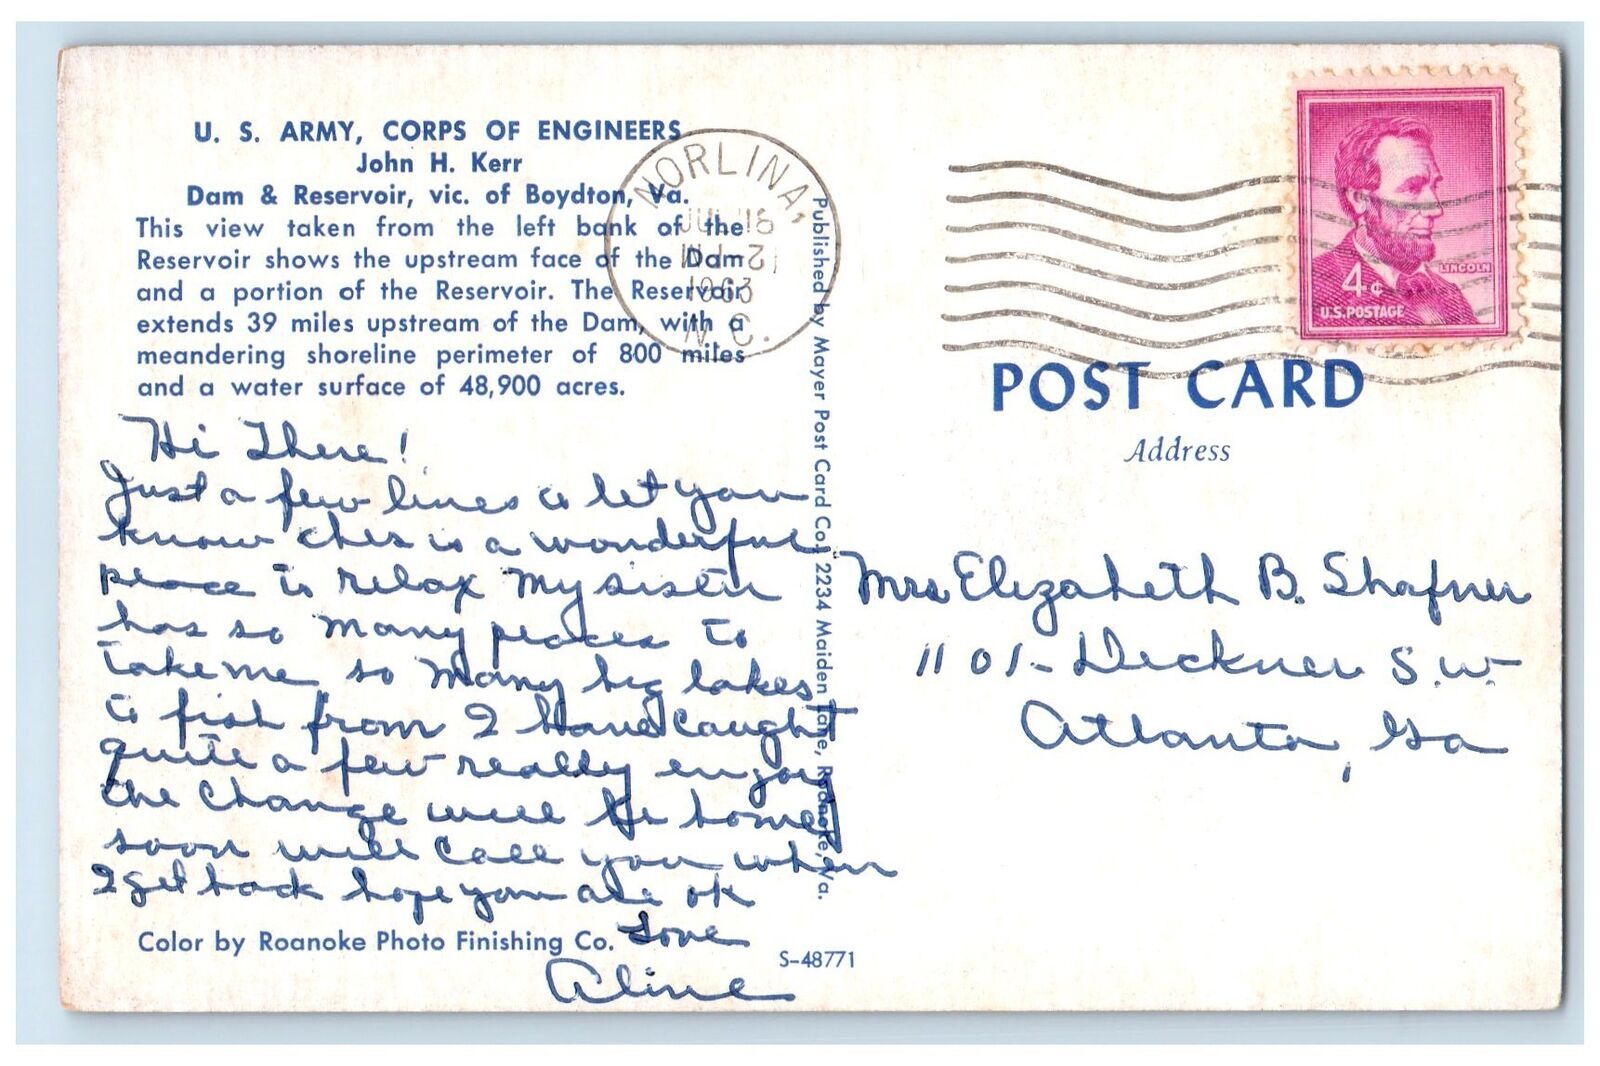 U. S. ARMY, CORPS OF ENGINEERS
John H. Kerr
Dam & Reservoir, vic. of Boydton, Va.
This view taken from the left bank of the
Reservoir shows the upstream face of the Dam
and a portion of the Reservoir. The Reservoir
extends 39 miles upstream of the Dam, with a
meandering shoreline perimeter of 800 miles
and a water surface of 48,900 acres.
Hi There!
Just a few lines to let you
know this is a wonderful
place to relax My sister
has so many places to
take me so many big lakes
to fish from I have caught
quite a few really enjoy
the change will be home
soon will call you when
I get back hope you are ok
Love
Aline
Color by Roanoke Photo Finishing Co.
S-48771
Published by Mayer Post Card Co., 2234 Maiden Lane, Roanoke, Va.
NORLINA,
JUL 18
1963
N. C.
LINCOLN
4¢
U.S. POSTAGE
POST CARD
Address
Mrs Elizabeth B. Shafner
1101- Deckner S.W.
Atlanta, Ga